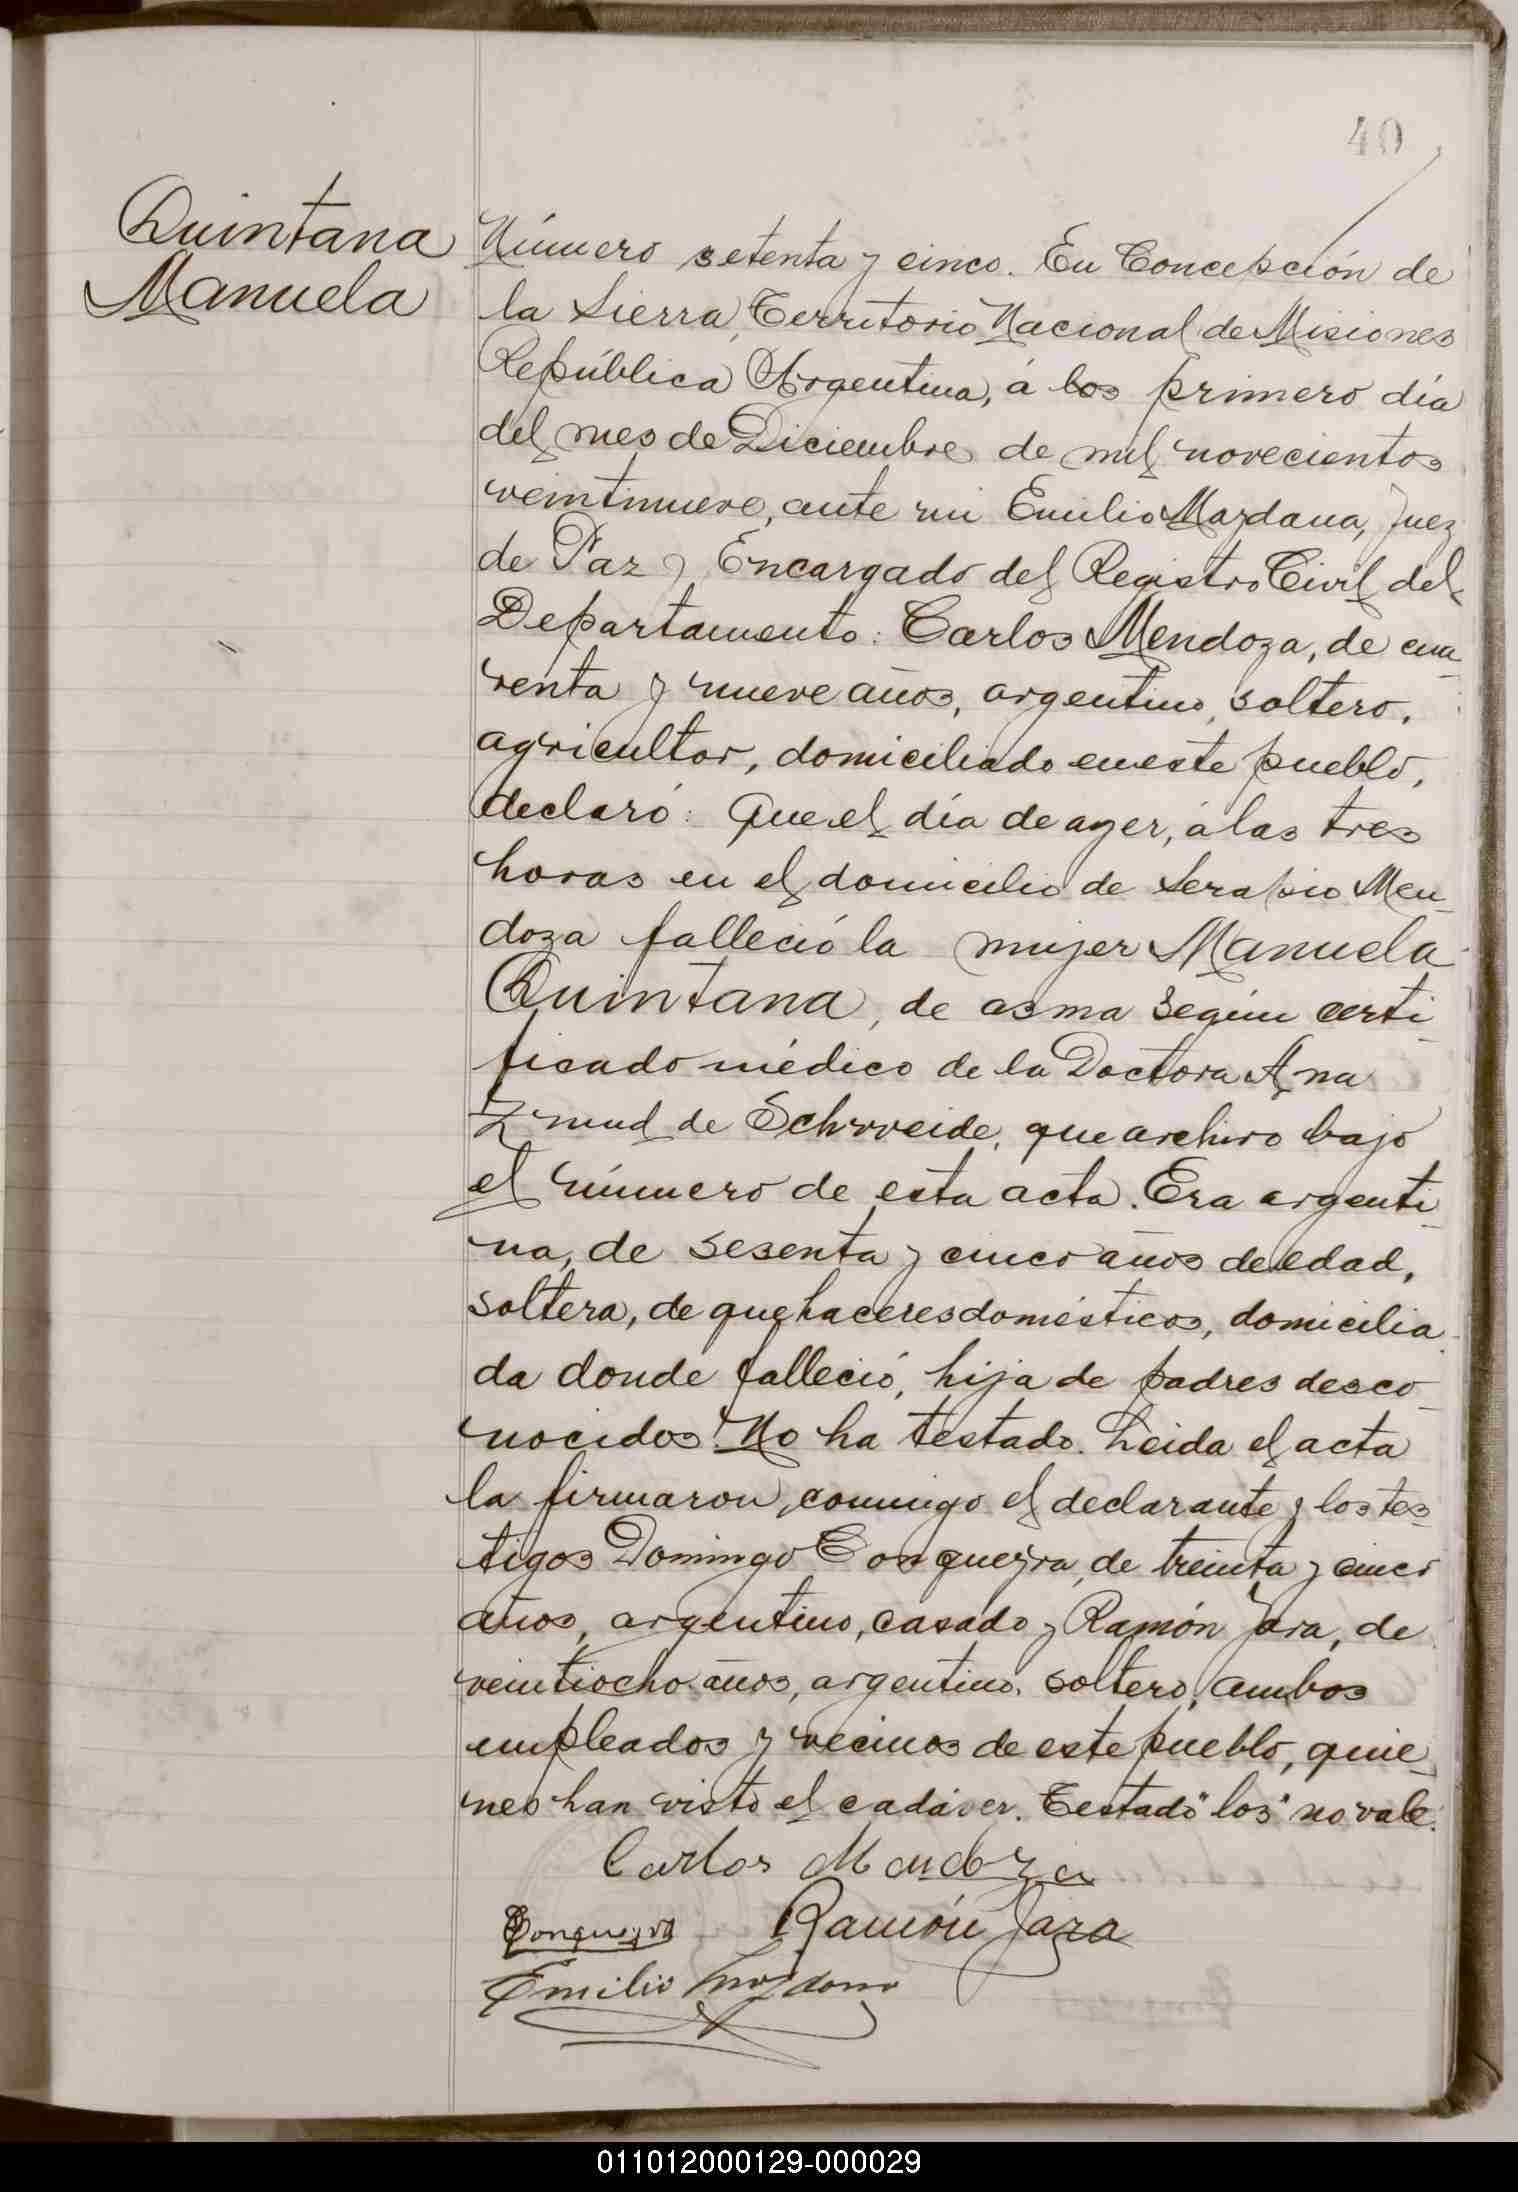 40
Quintana
Manuela
Número setenta y cinco. En Concepción de
la Sierra, Territorio Nacional de Misiones
República Argentina, á los primero día
del mes de Diciembre de mil novecientos
veintinueve, ante mi Emilio Mazdana, Juez
de Paz y Encargado del Registro Civil del
Departamento: Carlos Mendoza, de cua_
renta y nueve años, argentino, soltero,
agricultor, domiciliado en este pueblo,
declaró: Que el día de ayer, á las tres
horas en el domicilio de Serapio Men_
doza falleció la mujer Manuela
Quintana, de asma según certi_
ficado médico de la Doctora Ana
de que archivo bajo
el número de esta acta. Era argenti_
na, de sesenta y cinco años de edad,
soltera, de quehaceres domésticos, domicilia_
da donde falleció, hija de padres desco_
nocidos. No ha testado. Leida el acta
la firmaron, conmigo el declarante y los tes_
tigos Domingo Conqueyra, de treinta y cinco
años, argentino, casado y Ramón Jara, de
veintiocho años, argentino, soltero, ambos
empleados y vecinos de este pueblo, quie_
nes han visto el cadáver. Testado "los" no vale.
Carlos Mendoza
Conqueyra Ramón Jara
Emilio Mazdana
011012000129-000029